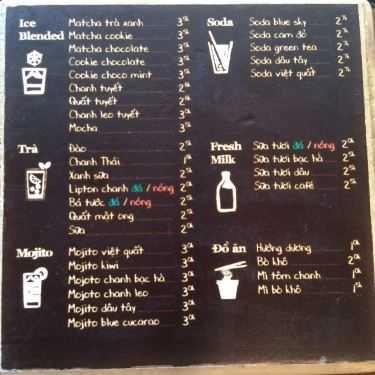 Ice Blended
Matcha trà xanh 3
Matcha cookie 3
Matcha chocolate 3
Cookie chocolate 3
Cookie choco mint 3
Chanh tuyết 2
Quất tuyết 2
Chanh leo tuyết 3
Mocha 3
Trà
Đào 2
Chanh Thái 1
Xanh sữa 2
Lipton chanh đá / nóng 2
Bá tước đá / nóng 2
Quất mật ong 2
Sữa 2
Mojito
Mojito việt quất 3
Mojito kiwi 3
Mojoto chanh bạc hà 3
Mojoto chanh leo 3
Mojito dâu tây 3
Mojito blue cucarao 3
Soda
Soda blue sky 2
Soda cam đỏ 2
Soda green tea 2
Soda dâu tây 2
Soda việt quất 2
Fresh Milk
Sữa tươi đá / nóng 2
Sữa tươi bạc hà 2
Sữa tươi dâu 2
Sữa tươi café 2
Đồ ăn
Hướng dương 1
Bò khô 2
Mì tôm chanh 1
Mì bò khô 1